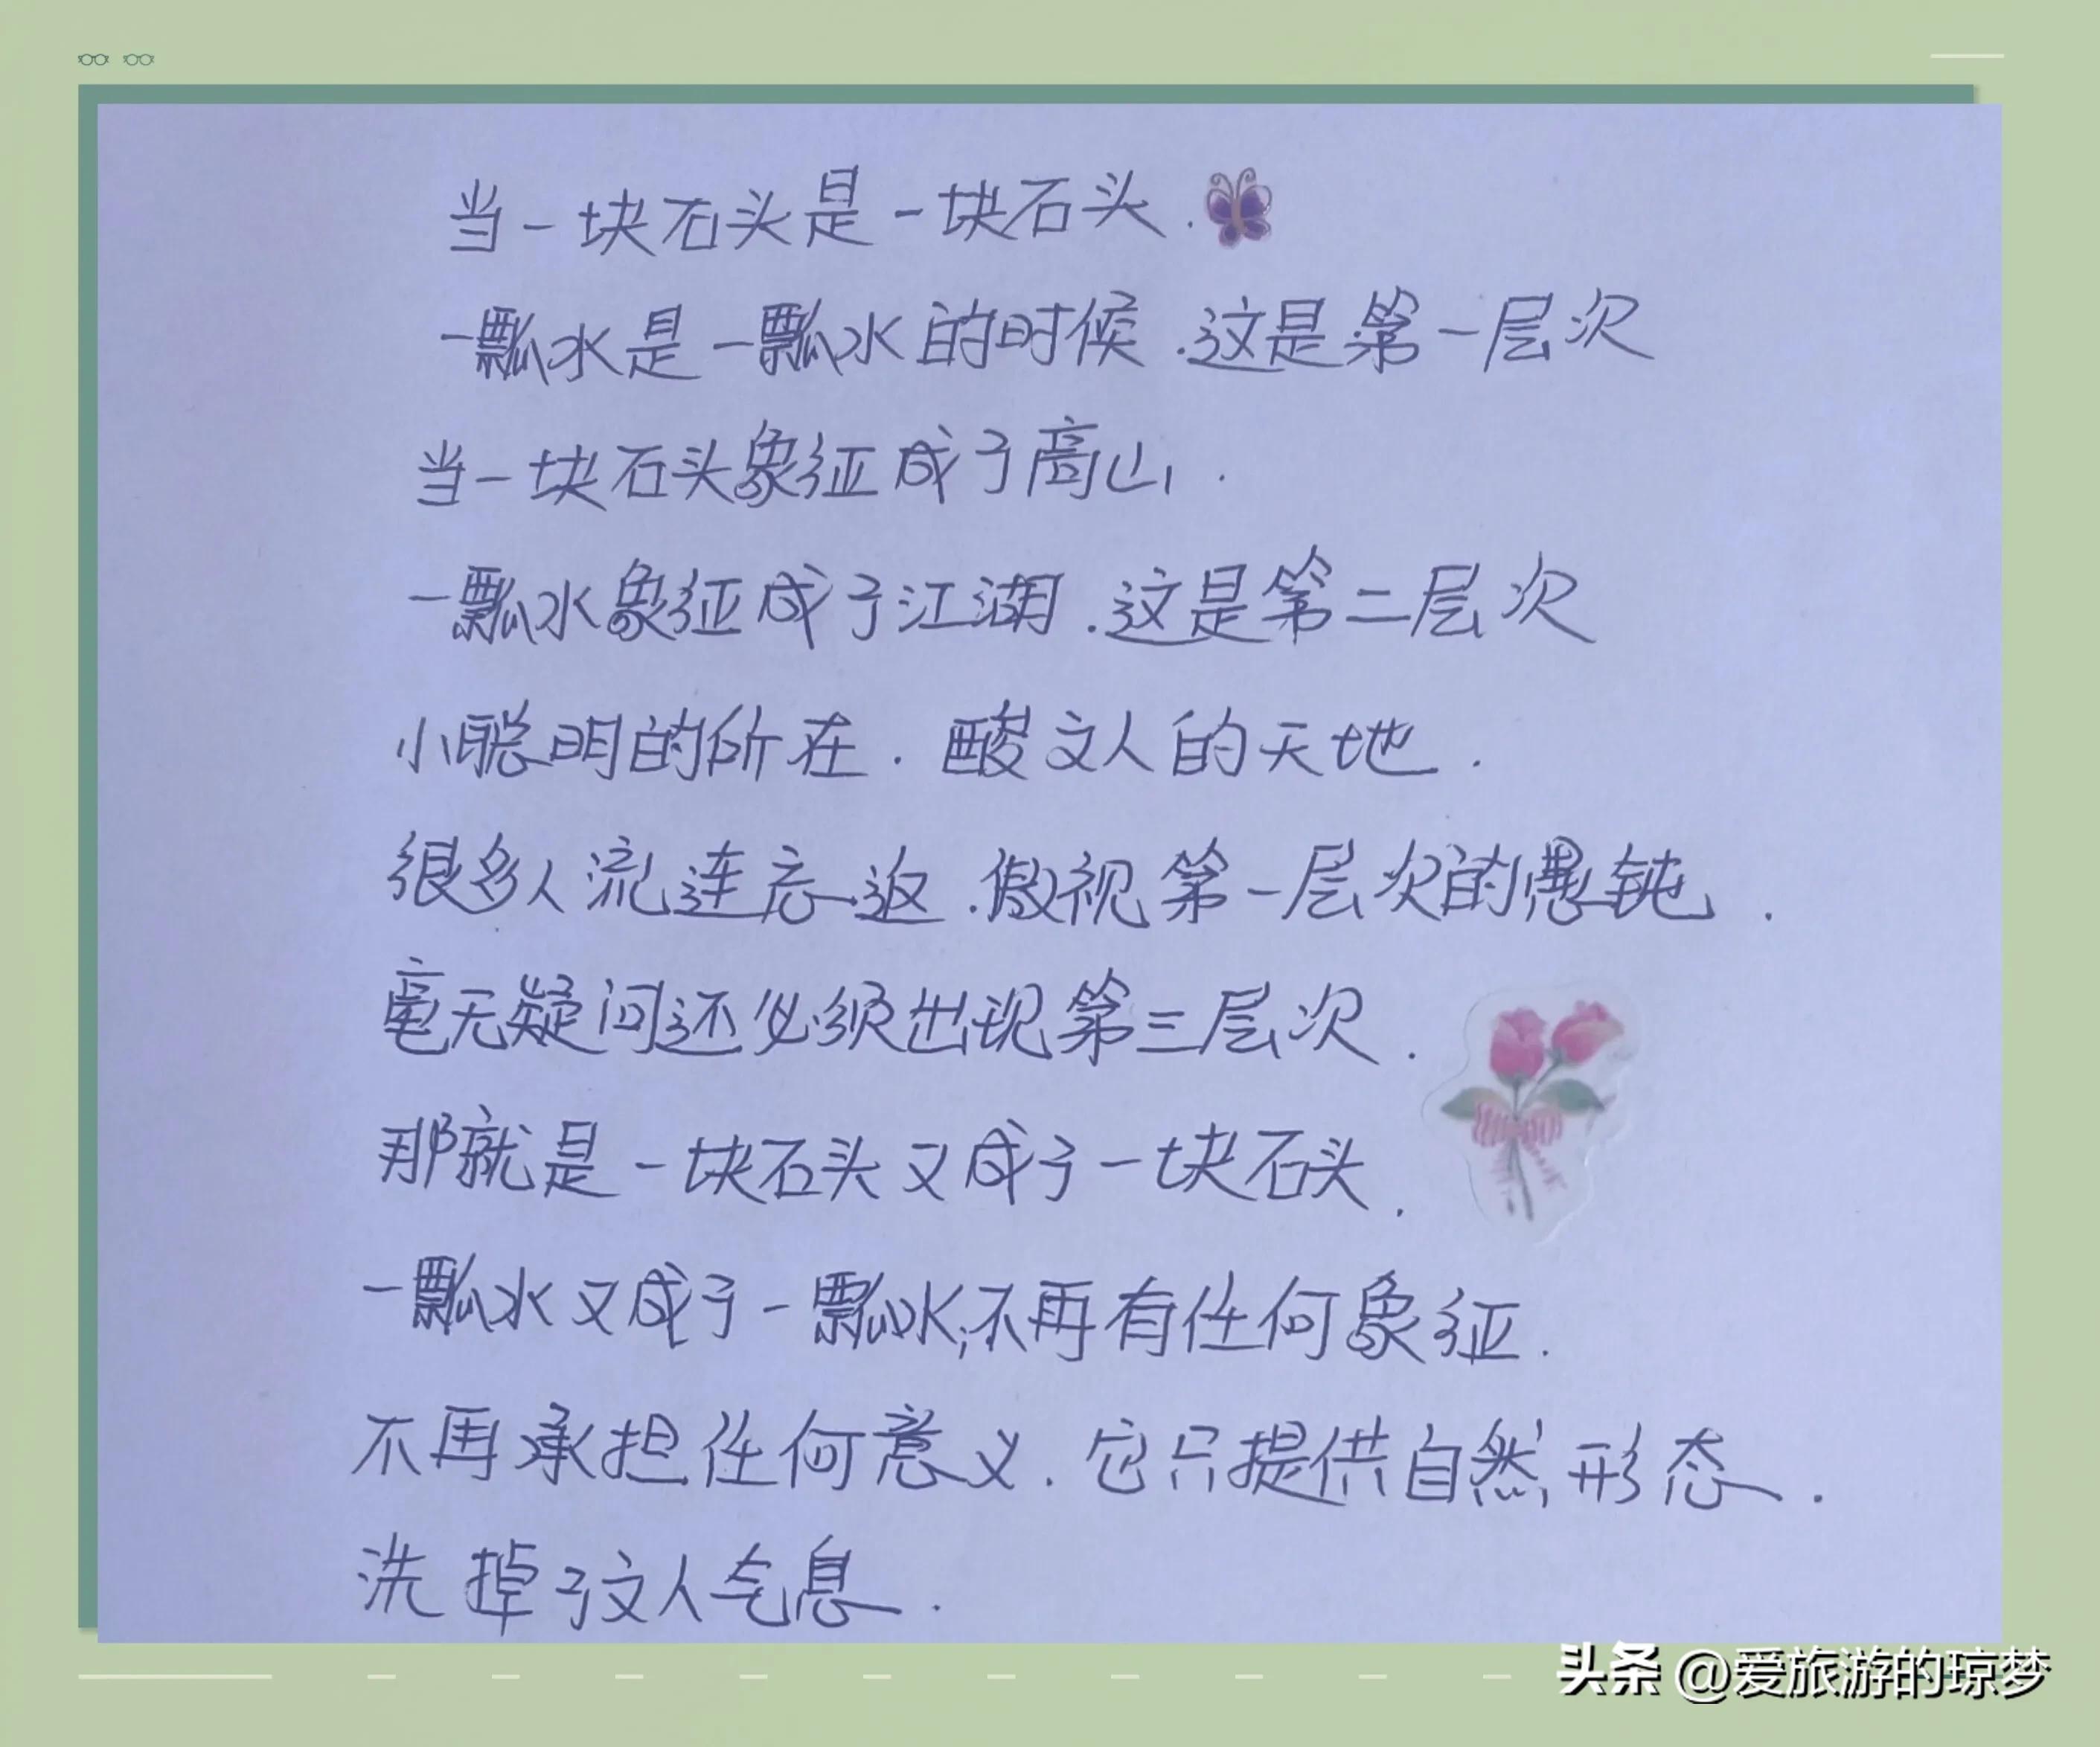 当一块石头是一块石头.
一瓢水是一瓢水的时候.这是第一层次
当一块石头象征成了高山.
一瓢水象征成了江湖.这是第二层次
小聪明的所在.酸文人的天地.
很多人流连忘返.傲视第一层次的愚钝.
毫无疑问还必须出现第三层次.
那就是一块石头又成了一块石头.
一瓢水又成了一瓢水,不再有任何象征.
不再承担任何意义.它只提供自然形态.
洗掉了文人气息.
头条 @爱旅游的琼梦